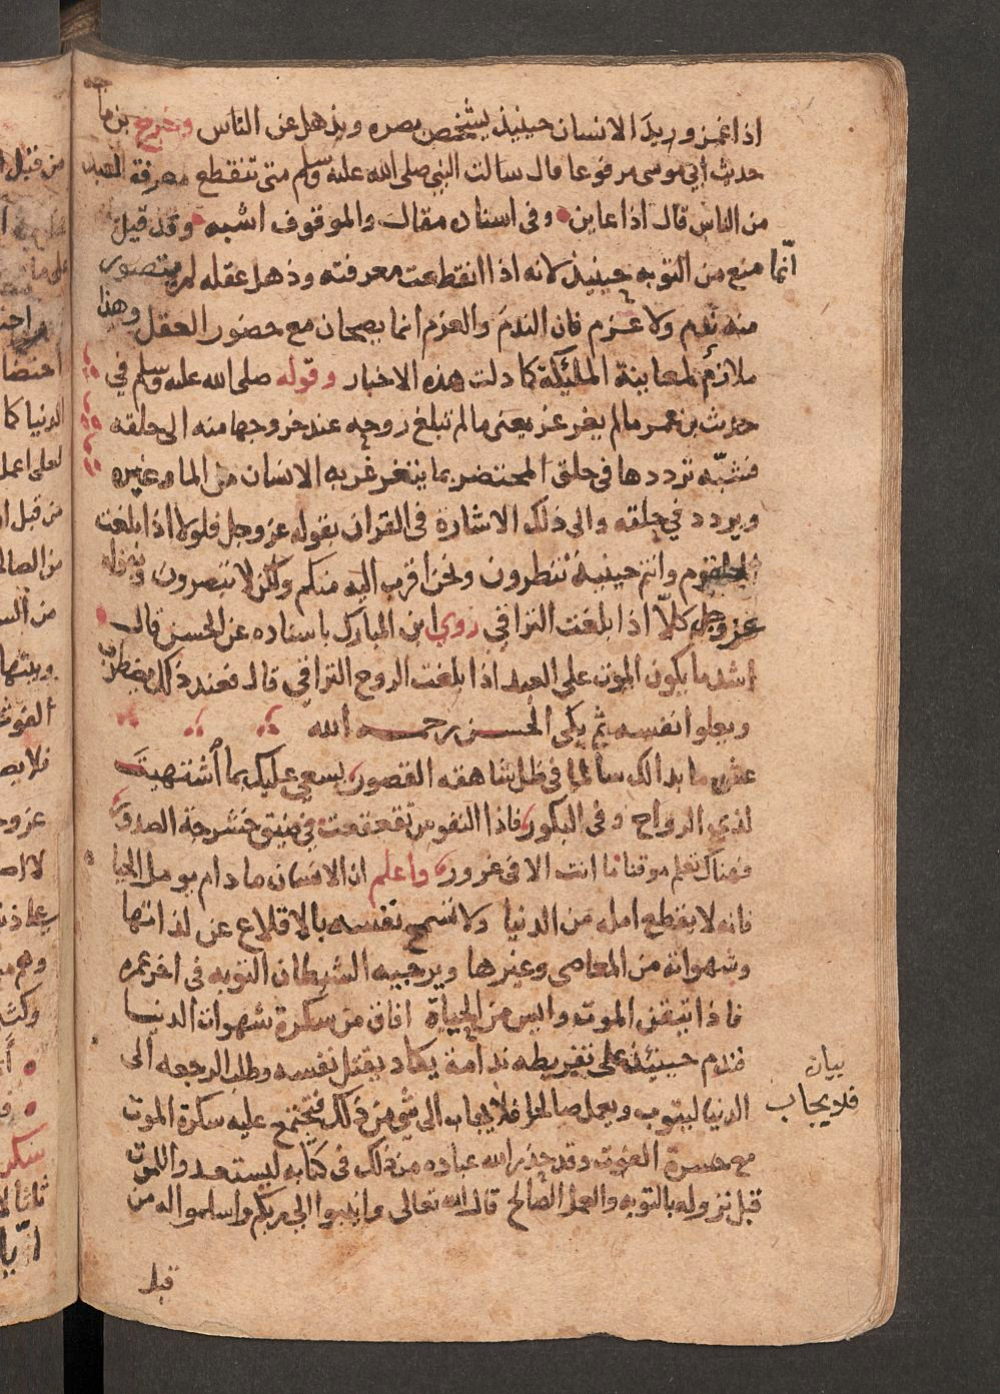 اذا غمز وريدَ الانسان حينيذ يشخص بصره ويذهل عن الناس وخرج بن ما
جه
حديث أبي موسى مرفوعا قال سالت النبي صلى الله عليه وسلم متى تنقطع معرفة العبد
من الناس قال اذا عاين وفي اسناده مقال والموقوف اشبه وقد قيل
انّما منع من التوبه حينيذ لانه اذا انقطعت معرفته وذهل عقله لم يتصور
منه ندم ولا عزم فان الندم والعزم انما يصحان مع حضور العقل وهذا
ملازم لمعاينة الملئكة كما دلت هذه الاخبار وقوله صلى الله عليه وسلم في
حديث بن عمر مالم يغرغر يعنى مالم تبلغ روحه عند خروجها منه الى حلقه
فشبّه ترددها في حلق المحتضر بما يتغرغر به الانسان من الما وغيره
ويردد في حلقه والى ذلك الاشارة في القران بقوله عز وجل فلولا اذا بلغت
الحلقوم وانتم حينيذ تنظرون ونحن اقرب اليه منكم ولكن لا تبصرون وبقوله
عز وجل كلاّ اذا بلغت التراقي روي ابن المبارك باسناده عن الحسن قال
اشد ما يكون الموت على العبد اذا بلغت الروح التراقي قال فعند ذلك يضطرب
ويعلو انفسه ثم بكى الحسن رحمه الله
عش ما بدالك سالما في ظل شاهقة القصور يسعى عليك بما اشتهيتَ
لذي الرواح وفي البكور فاذا النفوس تقعقعت في ضيق حشرجة الصدور
فهناك تعلم موقنا ما انت الا في غرور واعلم ان الانسان ما دام يومل الحيا
فانه لا يقطع امله من الدنيا ولا تسمح نفسه بالاقلاع عن لذاتها
وشهواته من المعاصي وغيرها ويرجيه الشيطان التوبه في اخر عمره
فاذا تيقن الموت وايس من الحياة افاق من سكرة شهوات الدنيا
فندم حينئذ على تفريطه ندامة يكاد يقتل نفسه وطلب الرجعه الى
الدنيا ليتوب ويعمل صالحا فلا يجاب الى شي من ذلك فيجتمع عليه سكرة الموت
بيان
فلا يجاب
مع حسرة الفوت وقد حذر الله عباده من ذلك في كتابه ليستعدوا للموت
قبل نزوله بالتوبه والعمل الصالح قال الله تعالى وانيبوا الى ربكم واسلموا له من
قبل